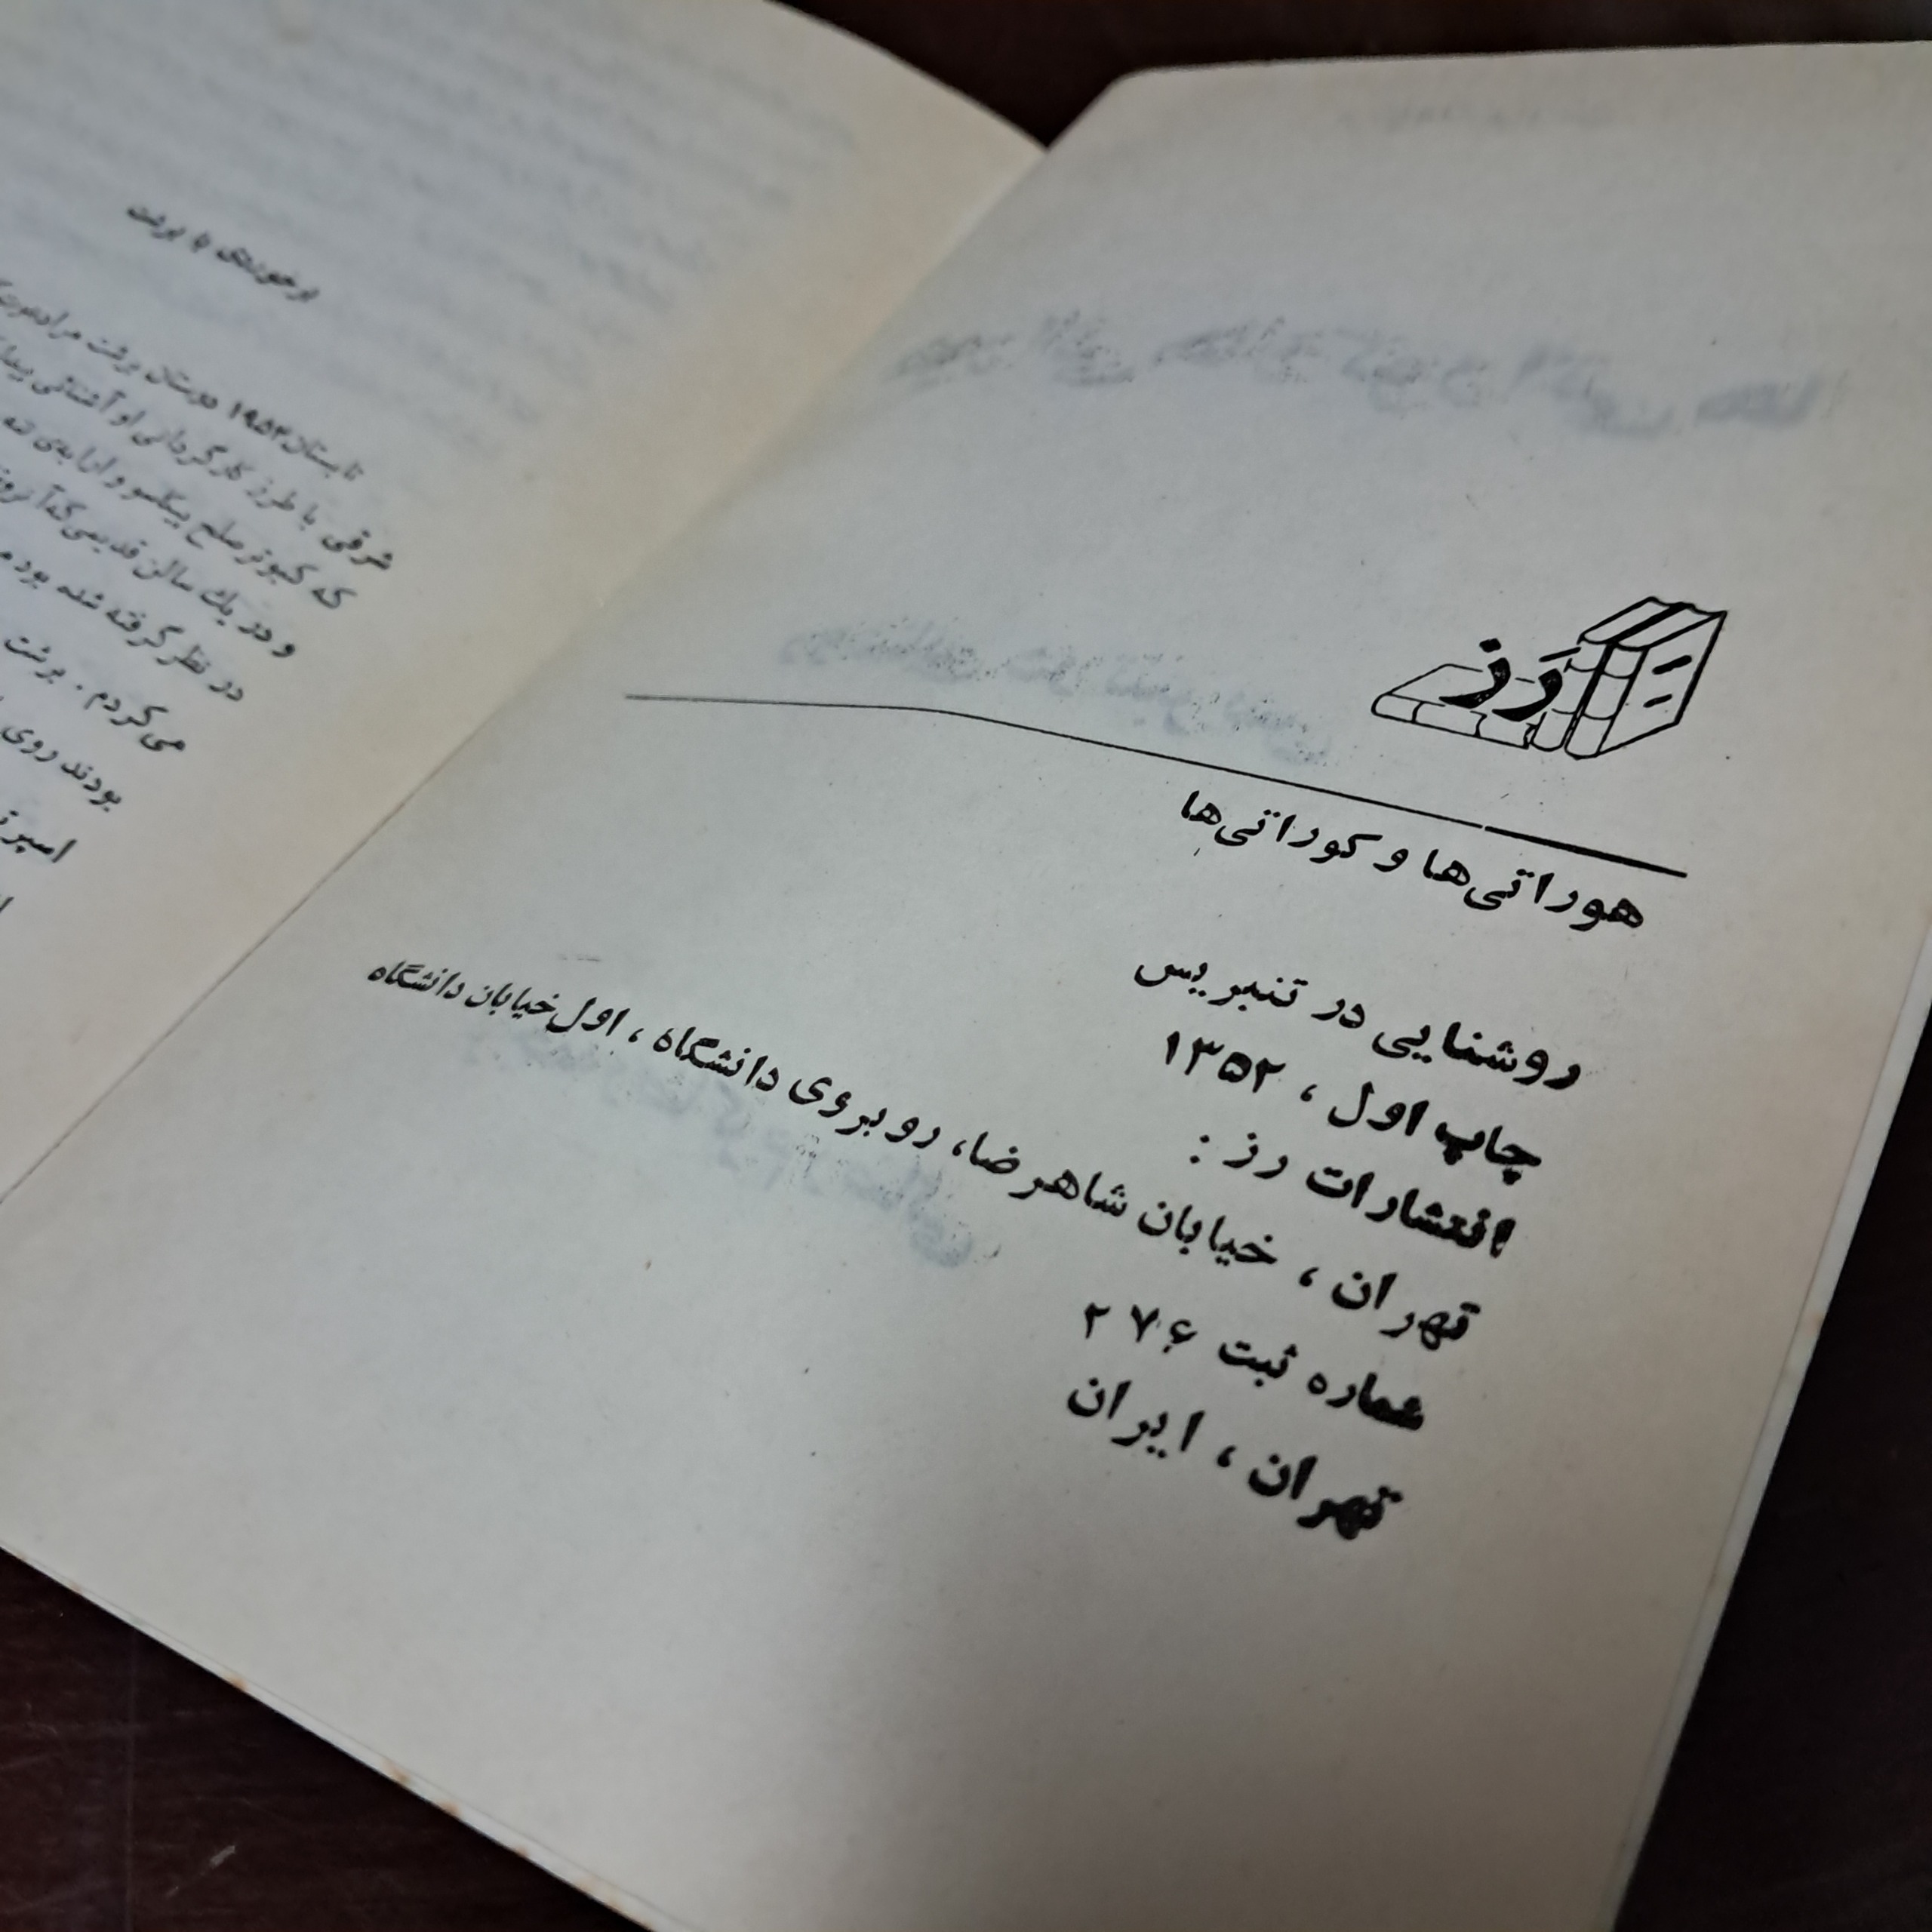 رَز
هوراتی‌ها و کوراتی‌ها
روشنایی در تنبریس
چاپ اول ، ۱۳۵۲
انتشارات رز :
تهران ، خیابان شاهرضا، روبروی دانشگاه ، اول خیابان دانشگاه
شماره ثبت ۲۷۶
تهران ، ایران
برخوردی با برشت
تابستان ۱۹۵۲ دوستان برشت مرا
شرقی با طرز کارگردانی او آشنائی
که کبوتر صلح پیکاسو
و در یك سالن قدیمی که
در نظر گرفته شده بود
می‌کردم . برشت
بودند روی